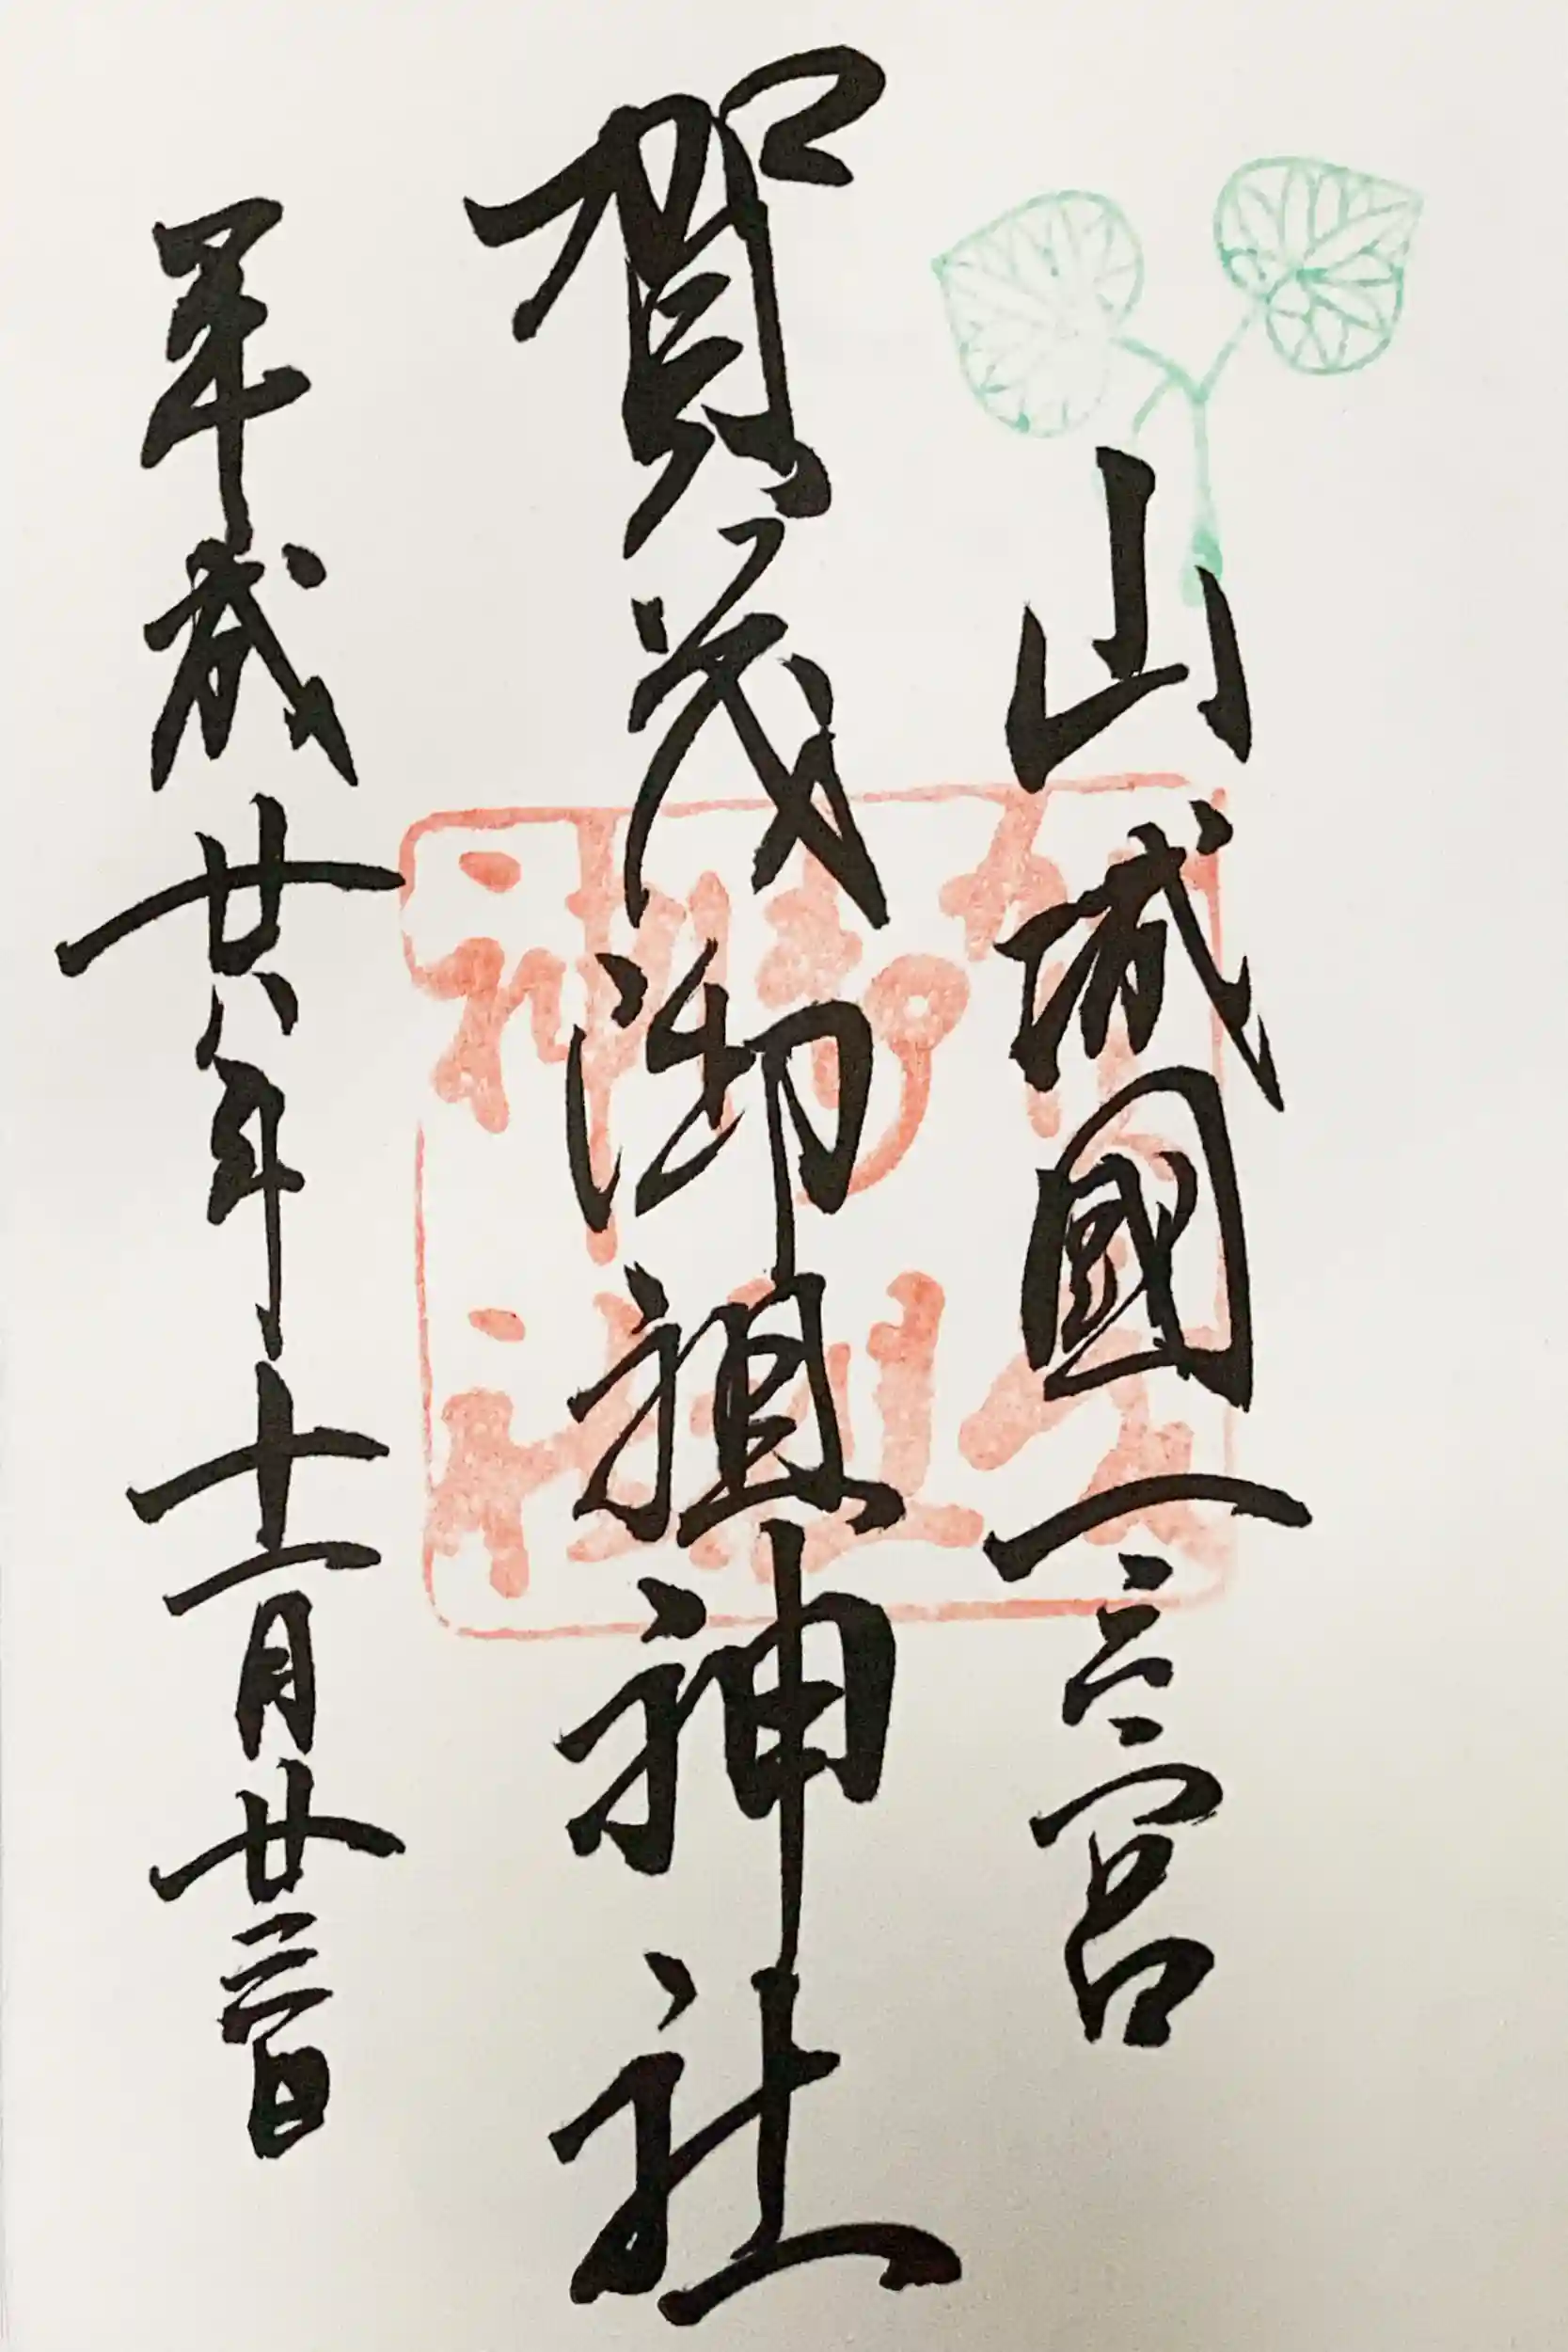 山城國一之宮
賀茂御祖神社
平成廿八年十一月廿三日